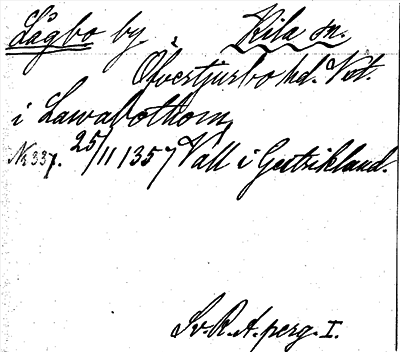 Lågbo by, Kila sn.
Öfvertjurbo hd. Vstm.
i Lawabothom
No 337. 25/11 1357 Vall i Gestrikland.
Sv. R. A. perg. I.